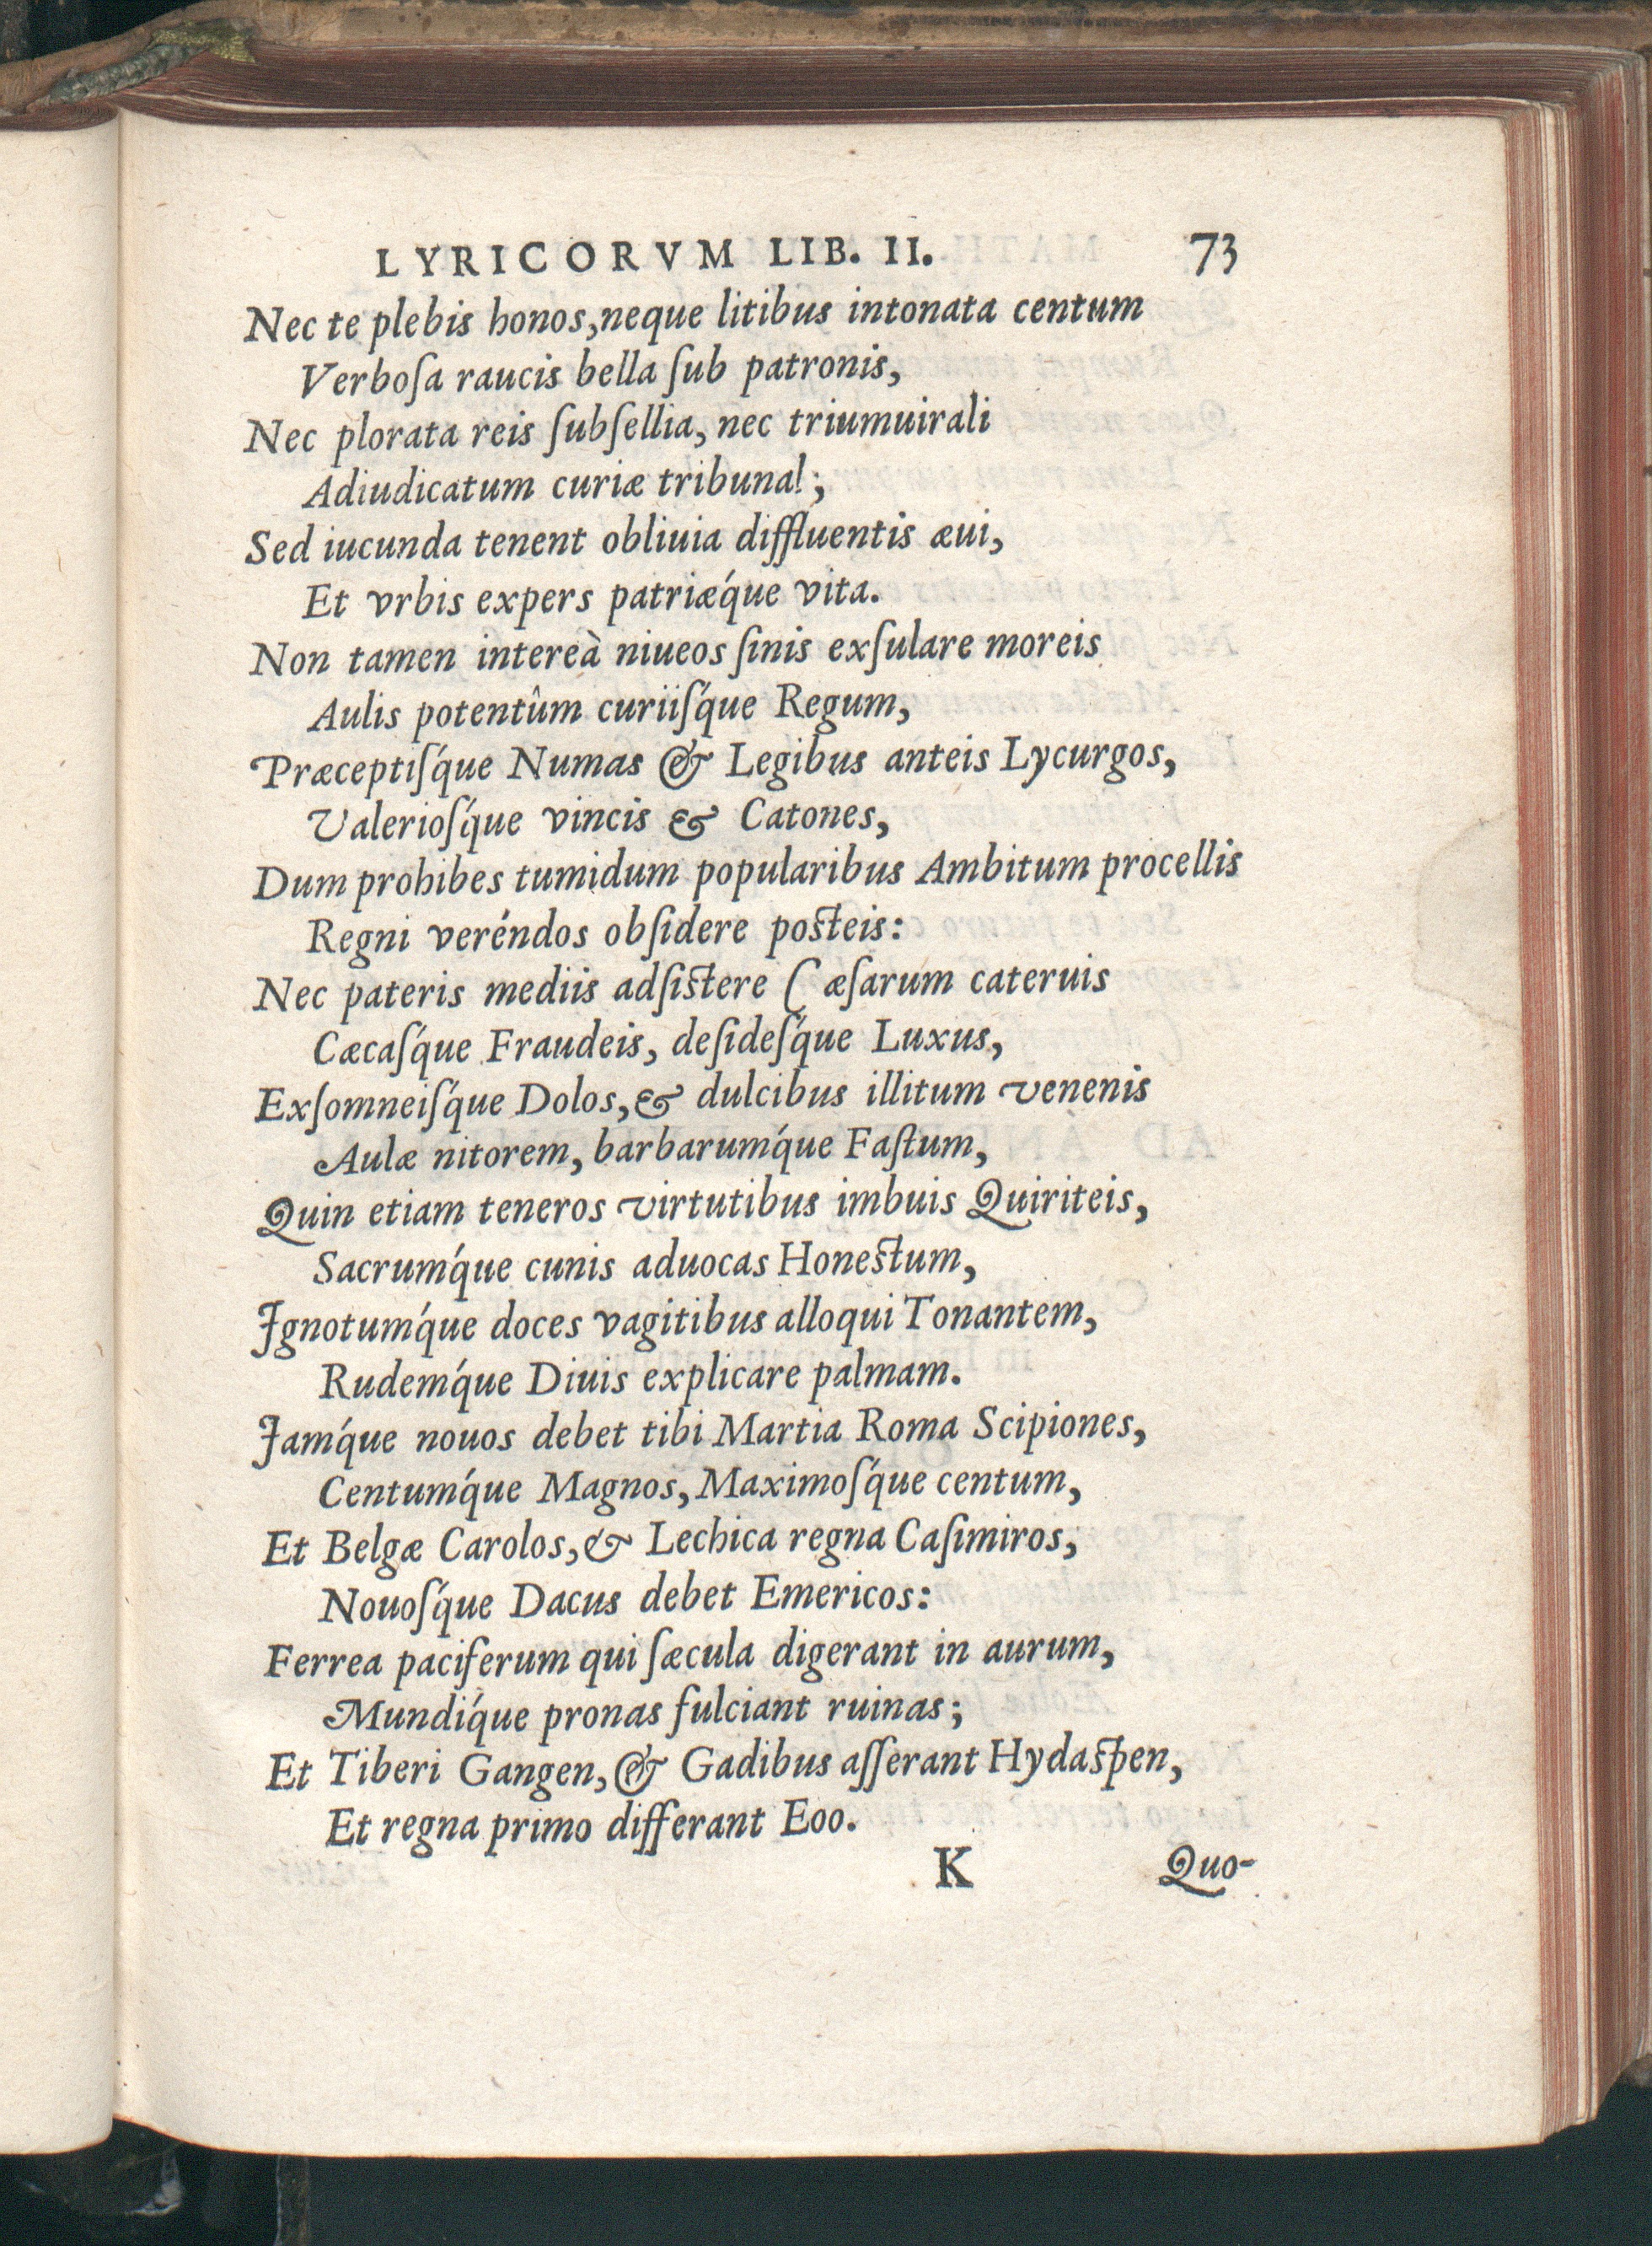 LYRICORVM LIB. II. 73
Nec te plebis honos, neque litibus intonata centum
Verboſa raucis bella ſub patronis,
Nec plorata reis ſubſellia, nec triumuirali
Adiudicatum curiæ tribunal;
Sed iucunda tenent obliuia diffluentis æui,
Et vrbis expers patriæq́ue vita.
Non tamen intereà niueos ſinis exſulare moreis
Aulis potentûm curiiſq́ue Regum,
Præceptiſq́ue Numas & Legibus anteis Lycurgos,
Valerioſq́ue vincis & Catones,
Dum prohibes tumidum popularibus Ambitum procellis
Regni veréndos obſidere poſteis:
Nec pateris mediis adſiſtere Cæſarum cateruis
Cæcaſq́ue Fraudeis, deſideſq́ue Luxus,
Exſomneiſq́ue Dolos, & dulcibus illitum venenis
Aulæ nitorem, barbarumq́ue Faſtum,
Quin etiam teneros virtutibus imbuis Quiriteis,
Sacrumq́ue cunis aduocas Honeſtum,
Ignotumq́ue doces vagitibus alloqui Tonantem,
Rudemq́ue Diuis explicare palmam.
Iamq́ue nouos debet tibi Martia Roma Scipiones,
Centumq́ue Magnos, Maximoſq́ue centum,
Et Belgæ Carolos, & Lechica regna Caſimiros,
Nouoſq́ue Dacus debet Emericos:
Ferrea paciferum qui ſæcula digerant in aurum,
Mundiq́ue pronas fulciant ruinas;
Et Tiberi Gangen, & Gadibus aſſerant Hydaſpen,
Et regna primo differant Eoo.
K Quo-